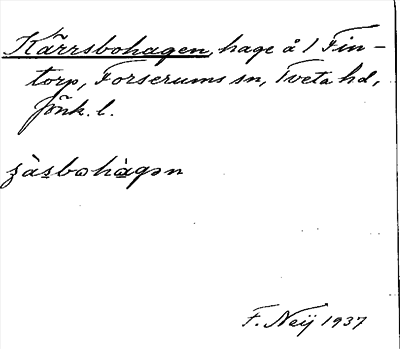 Kärrsbohagen, hage å 1 Fin-
torp, Forserums sn, Tveta hd,
Jönk. l.
F. Neij 1937